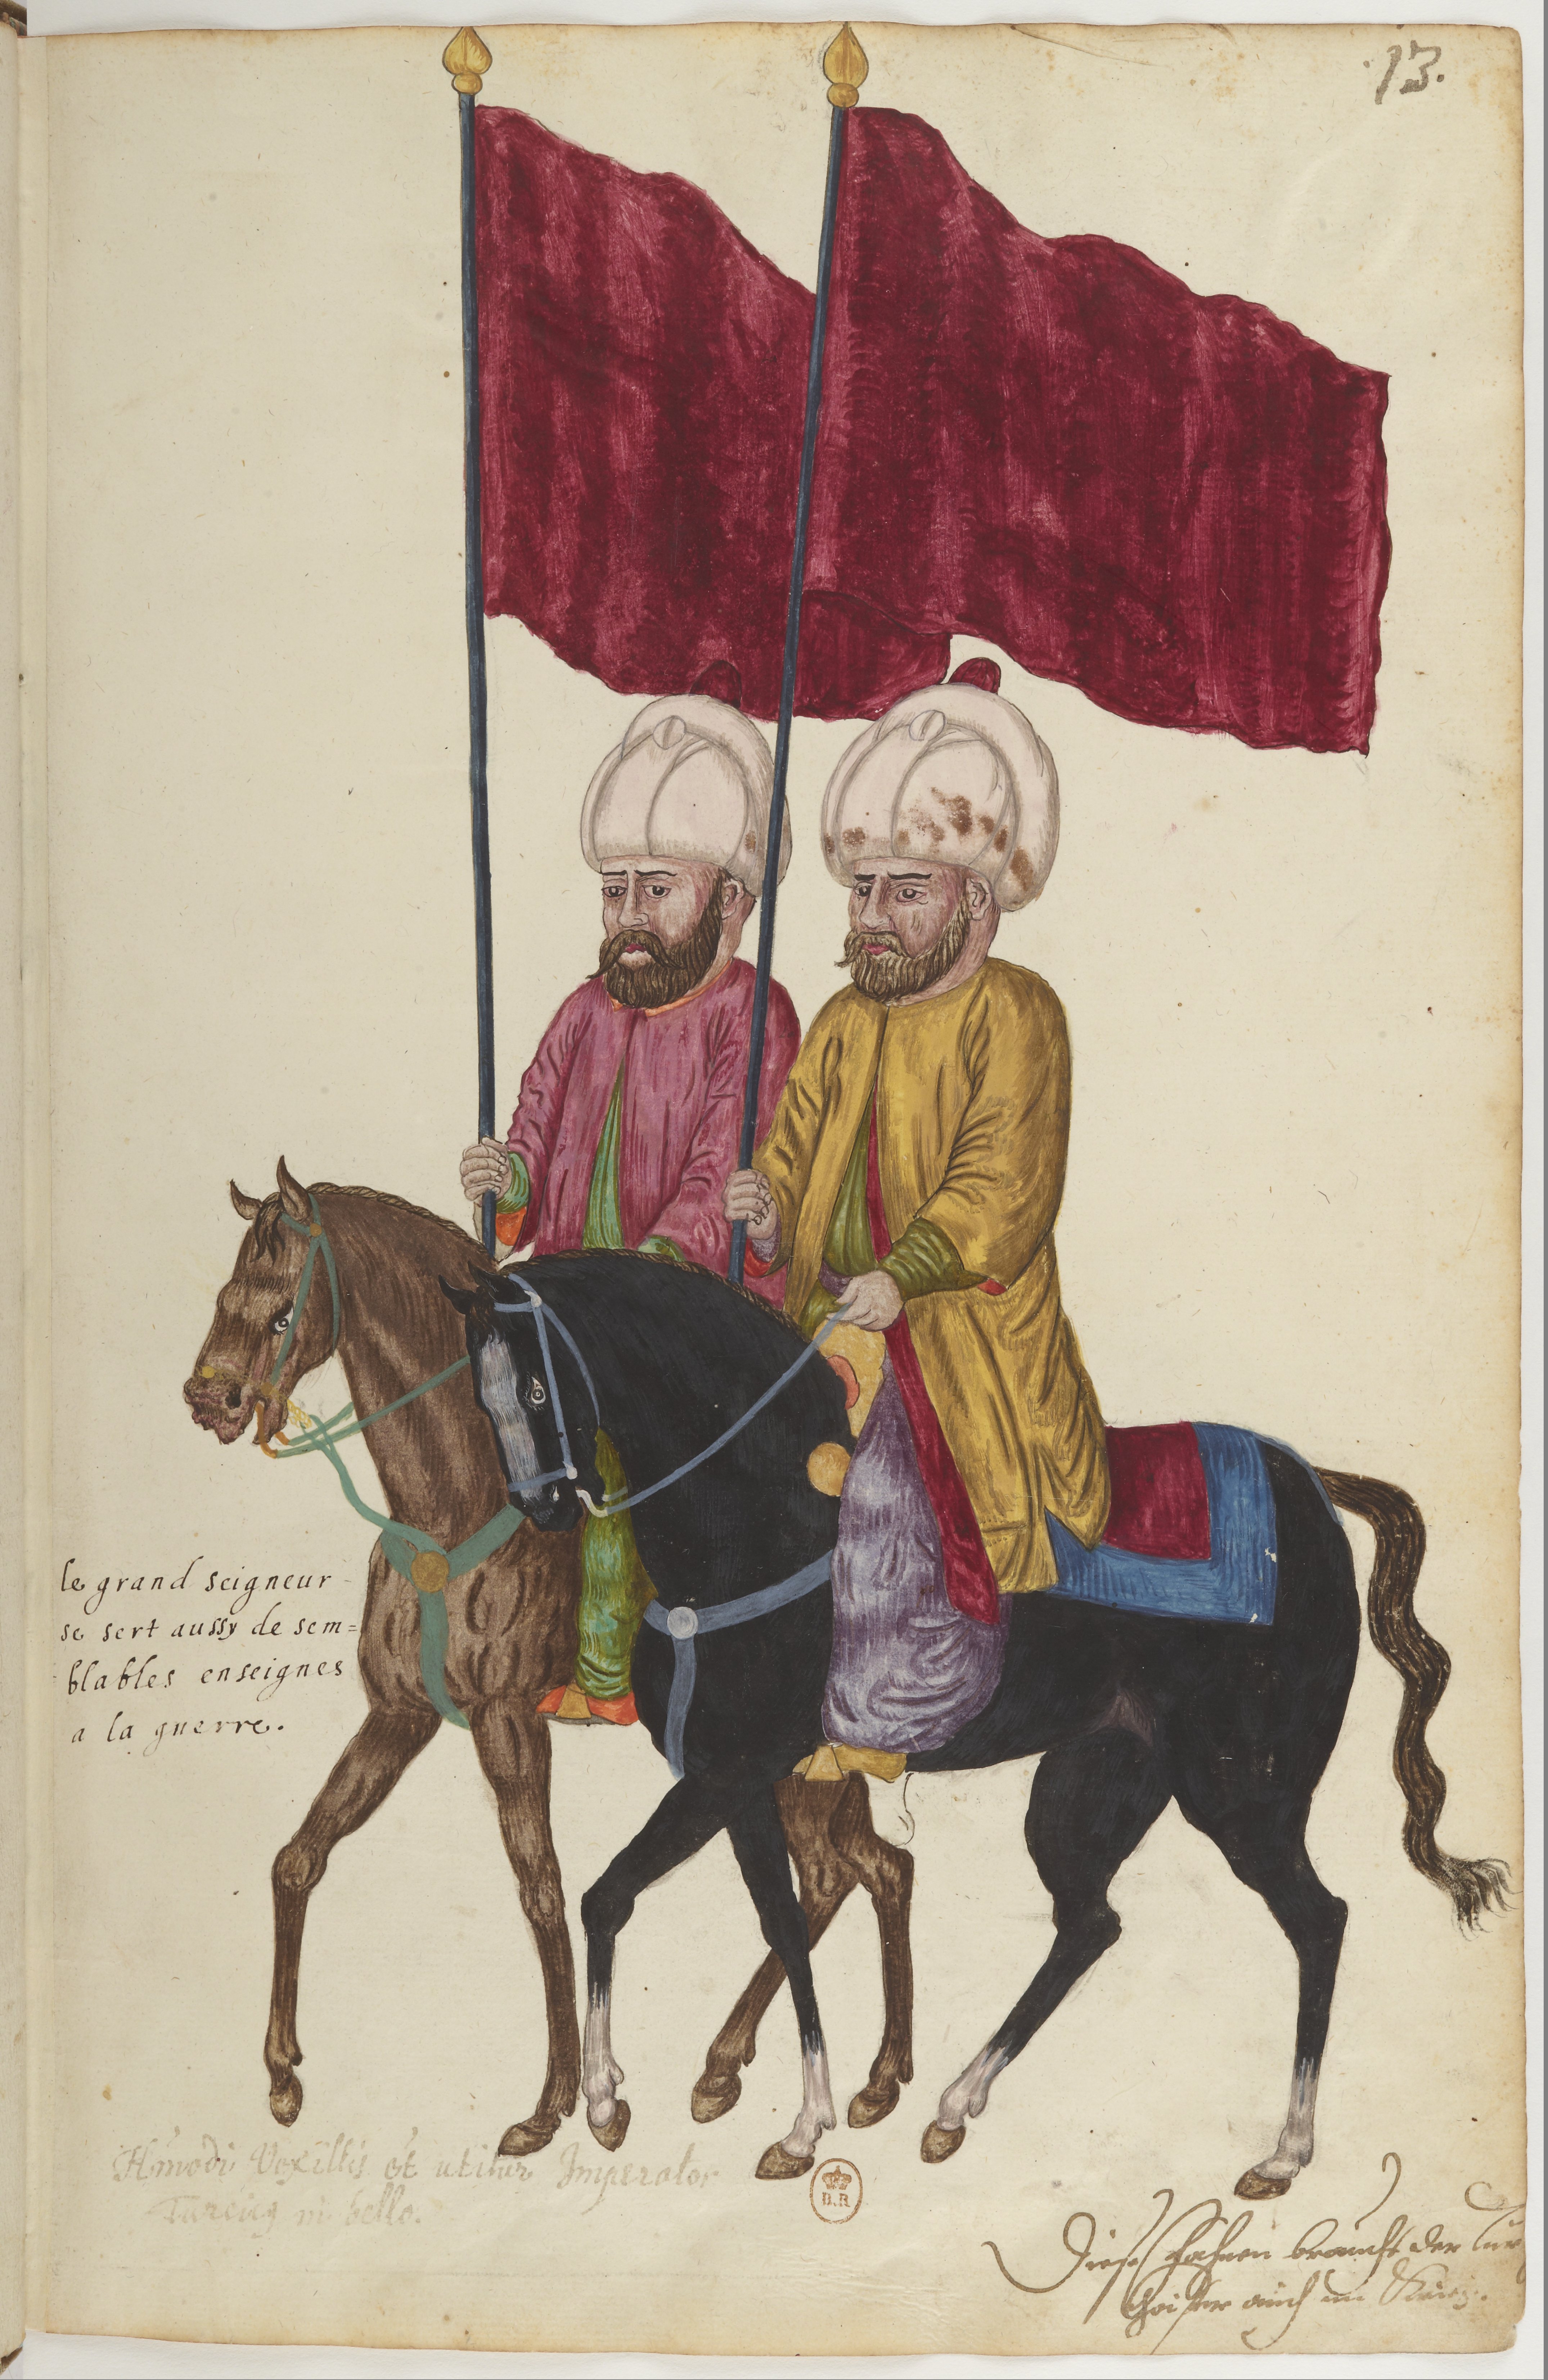 13.
le grand seigneur
se sert aussy de sem=
blables enseignes
a la guerre.
Hmodi Vexillis et utitur Imperator
Turcicq in bello.
B.R
Diese Fahnen braucht der Tür
Kaiser auch im Krieg.